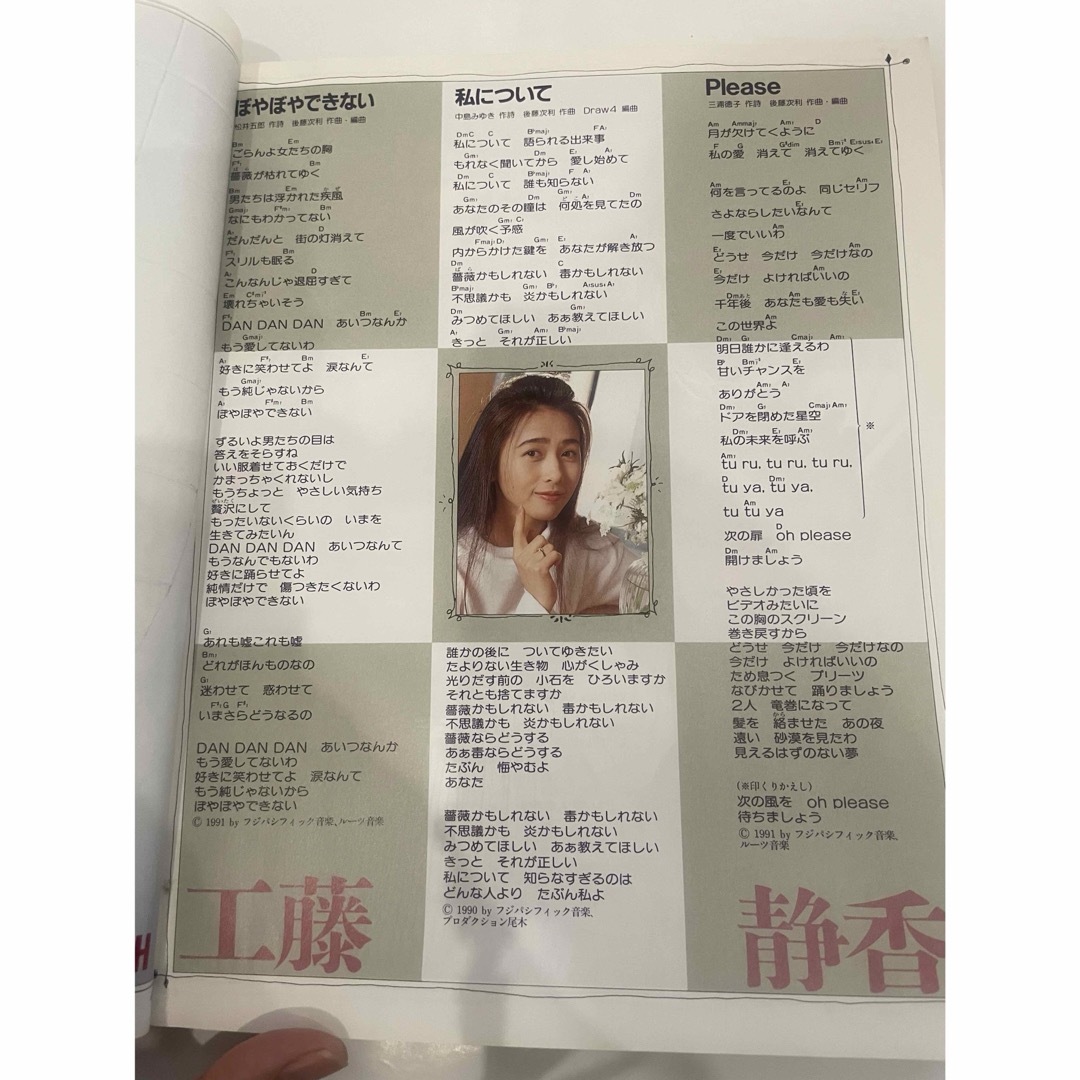 ぼやぼやできない
松井五郎 作詩 後藤次利 作曲・編曲
Bm Em
ごらんよ女たちの胸
F♯7 Bm
薔薇が枯れてゆく
Bm Em
男たちは浮かれた疾風
Gmaj7 F♯m7 Bm
なにもわかってない
A7 D
だんだんと 街の灯消えて
F♯7 Bm
スリルも眠る
A7 D
こんなんじゃ退屈すぎて
Em C♯m7-5
壊れちゃいそう
F♯7 Bm E7
DAN DAN DAN あいつなんか
Gmaj7
もう愛してないわ
A7 F♯7 Bm E7
好きに笑わせてよ 涙なんて
Gmaj7
もう純じゃないから
A7 F♯m7 Bm
ぼやぼやできない
ずるいよ男たちの目は
答えをそらすね
いい服着せておくだけで
かまっちゃくれないし
もうちょっと やさしい気持ち
贅沢にして
もったいないくらいの いまを
生きてみたいん
DAN DAN DAN あいつなんて
もうなんでもないわ
好きに踊らせてよ
純情だけで 傷つきたくないわ
ぼやぼやできない
G7
あれも嘘これも嘘
Bm7
どれがほんものなの
G7
迷わせて 惑わせて
F♯7 G F♯7
いまさらどうなるの
DAN DAN DAN あいつなんか
もう愛してないわ
好きに笑わせてよ 涙なんて
もう純じゃないから
ぼやぼやできない
© 1991 by フジパシフィック音楽、ルーツ音楽
私について
中島みゆき 作詩 後藤次利 作曲 Draw4 編曲
DmC C B♭maj7 FA7
私について 語られる出来事
Gm7 E7 A7
もれなく聞いてから 愛し始めて
Dm C B♭maj7 F A7
私について 誰も知らない
Gm7 A7 Dm Gm7 A7 Dm
あなたのその瞳は 何処を見てたの
Gm7 C7
風が吹く予感
Fmaj7 D7 Gm7 E7 A7
内からかけた鍵を あなたが解き放つ
Dm C
薔薇かもしれない 毒かもしれない
B♭maj7 Gm7 B♭7 A7sus4 A7
不思議かも 炎かもしれない
Dm Gm7
みつめてほしい あぁ教えてほしい
A7 Gm7 Am7 B♭maj7
きっと それが正しい
誰かの後に ついてゆきたい
たよりない生き物 心がくしゃみ
光りだす前の 小石を ひろいますか
それとも捨てますか
薔薇かもしれない 毒かもしれない
不思議かも 炎かもしれない
薔薇ならどうする
あぁ毒ならどうする
たぶん 悔やむよ
あなた
薔薇かもしれない 毒かもしれない
不思議かも 炎かもしれない
みつめてほしい あぁ教えてほしい
きっと それが正しい
私について 知らなすぎるのは
どんな人より たぶん私よ
© 1990 by フジパシフィック音楽、
プロダクション尾木
Please
三浦徳子 作詩 後藤次利 作曲・編曲
Am Ammaj7 Am7 D
月が欠けてくように
F G G♯dim Bm7-5 E7sus4 E7
私の愛 消えて 消えてゆく
Am E7 Am
何を言ってるのよ 同じセリフ
E7
さよならしたいなんて
Am
一度でいいわ
E7 Am
どうせ 今だけ 今だけなの
E7 Am
今だけ よければいいの
Dm Am E7
千年後 あなたも愛も失い
Am
この世界よ
Dm7 G7 Cmaj7 Am7
明日誰かに逢えるわ
B♭ Bm7-5 E7
甘いチャンスを
Am7 A7
ありがとう
Dm7 G7 Cmaj7 Am7
ドアを閉めた星空
Dm7 E7 Am7
私の未来を呼ぶ
Am
tu ru. tu ru. tu ru.
D Dm
tu ya. tu ya.
Am
tu tu ya
※
D
次の扉 oh please
Dm Am
開けましょう
やさしかった頃を
ビデオみたいに
この胸のスクリーン
巻き戻すから
どうせ 今だけ 今だけなの
今だけ よければいいの
ため息つく プリーツ
なびかせて 踊りましょう
2人 竜巻になって
髪を 絡ませた あの夜
遠い 砂漠を見たわ
見えるはずのない夢
(※印くりかえし)
次の風を oh please
待ちましょう
© 1991 by フジパシフィック音楽、
ルーツ音楽
工藤
静香
H